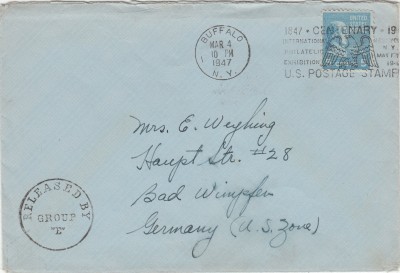 BUFFALO
MAR 4
10 PM
1
1947
N.Y.
1847 • CENTENARY • 19
INTERNATIONAL
PHILATELIC
EXHIBITION
N Y
MAY 17
U.S. POSTAGE STAMP
UNITED
Mrs. E. Weyhing
Haupt Str. #28
Bad Wimpfen
Germany (U.S. Zone)
RELEASED BY
GROUP
"E"